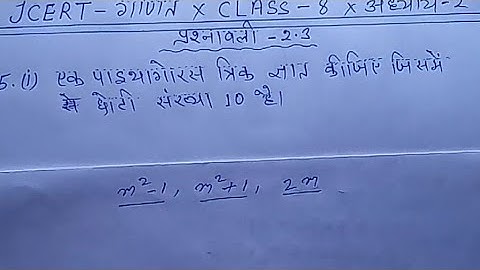 JCERT - गणित x CLASS - 8 x अध्याय - 2
प्रश्नावली - 2.3
5. (i) एक पाइथागोरस त्रिक ज्ञात कीजिए जिसमें
छोटी संख्या 10 है।
m²-1, m²+1, 2m